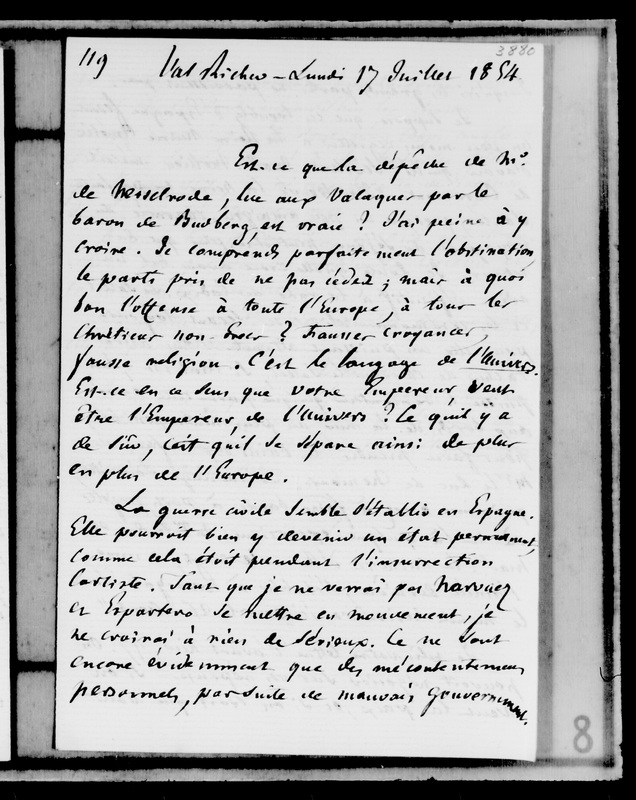 3880
119 Val Richer - Lundi 17 Juillet 1854
Est-ce que la dépêche de Mr
de Nesselrode, lue aux Valaques par le
baron de Budberg, est vraie ? J'ai peine à y
croire. Je comprends parfaitement l'obstination,
le parti pris de ne pas céder ; mais à quoi
bon l'offense à toute l'Europe, à tous les
Chrétiens non Grecs ? Fausses croyances,
fausse religion. C'est le langage de l'Univers.
Est-ce en ce sens que votre Empereur veut
être l'Empereur de l'Univers ? Ce qu'il y a
de sûr, c'est qu'il se sépare ainsi de plus
en plus de l'Europe.
La guerre civile semble s'établir en Espagne.
Elle pourroit bien y devenir un état permanent,
comme cela étoit pendant l'insurrection
Carliste. Tant que je ne verrai pas Narvaez
et Espartero se mettre en mouvement, je
ne croirai à rien de sérieux. Ce ne sont
encore évidemment que des mécontentemens
personnels, par suite de mauvais gouvernement.
8